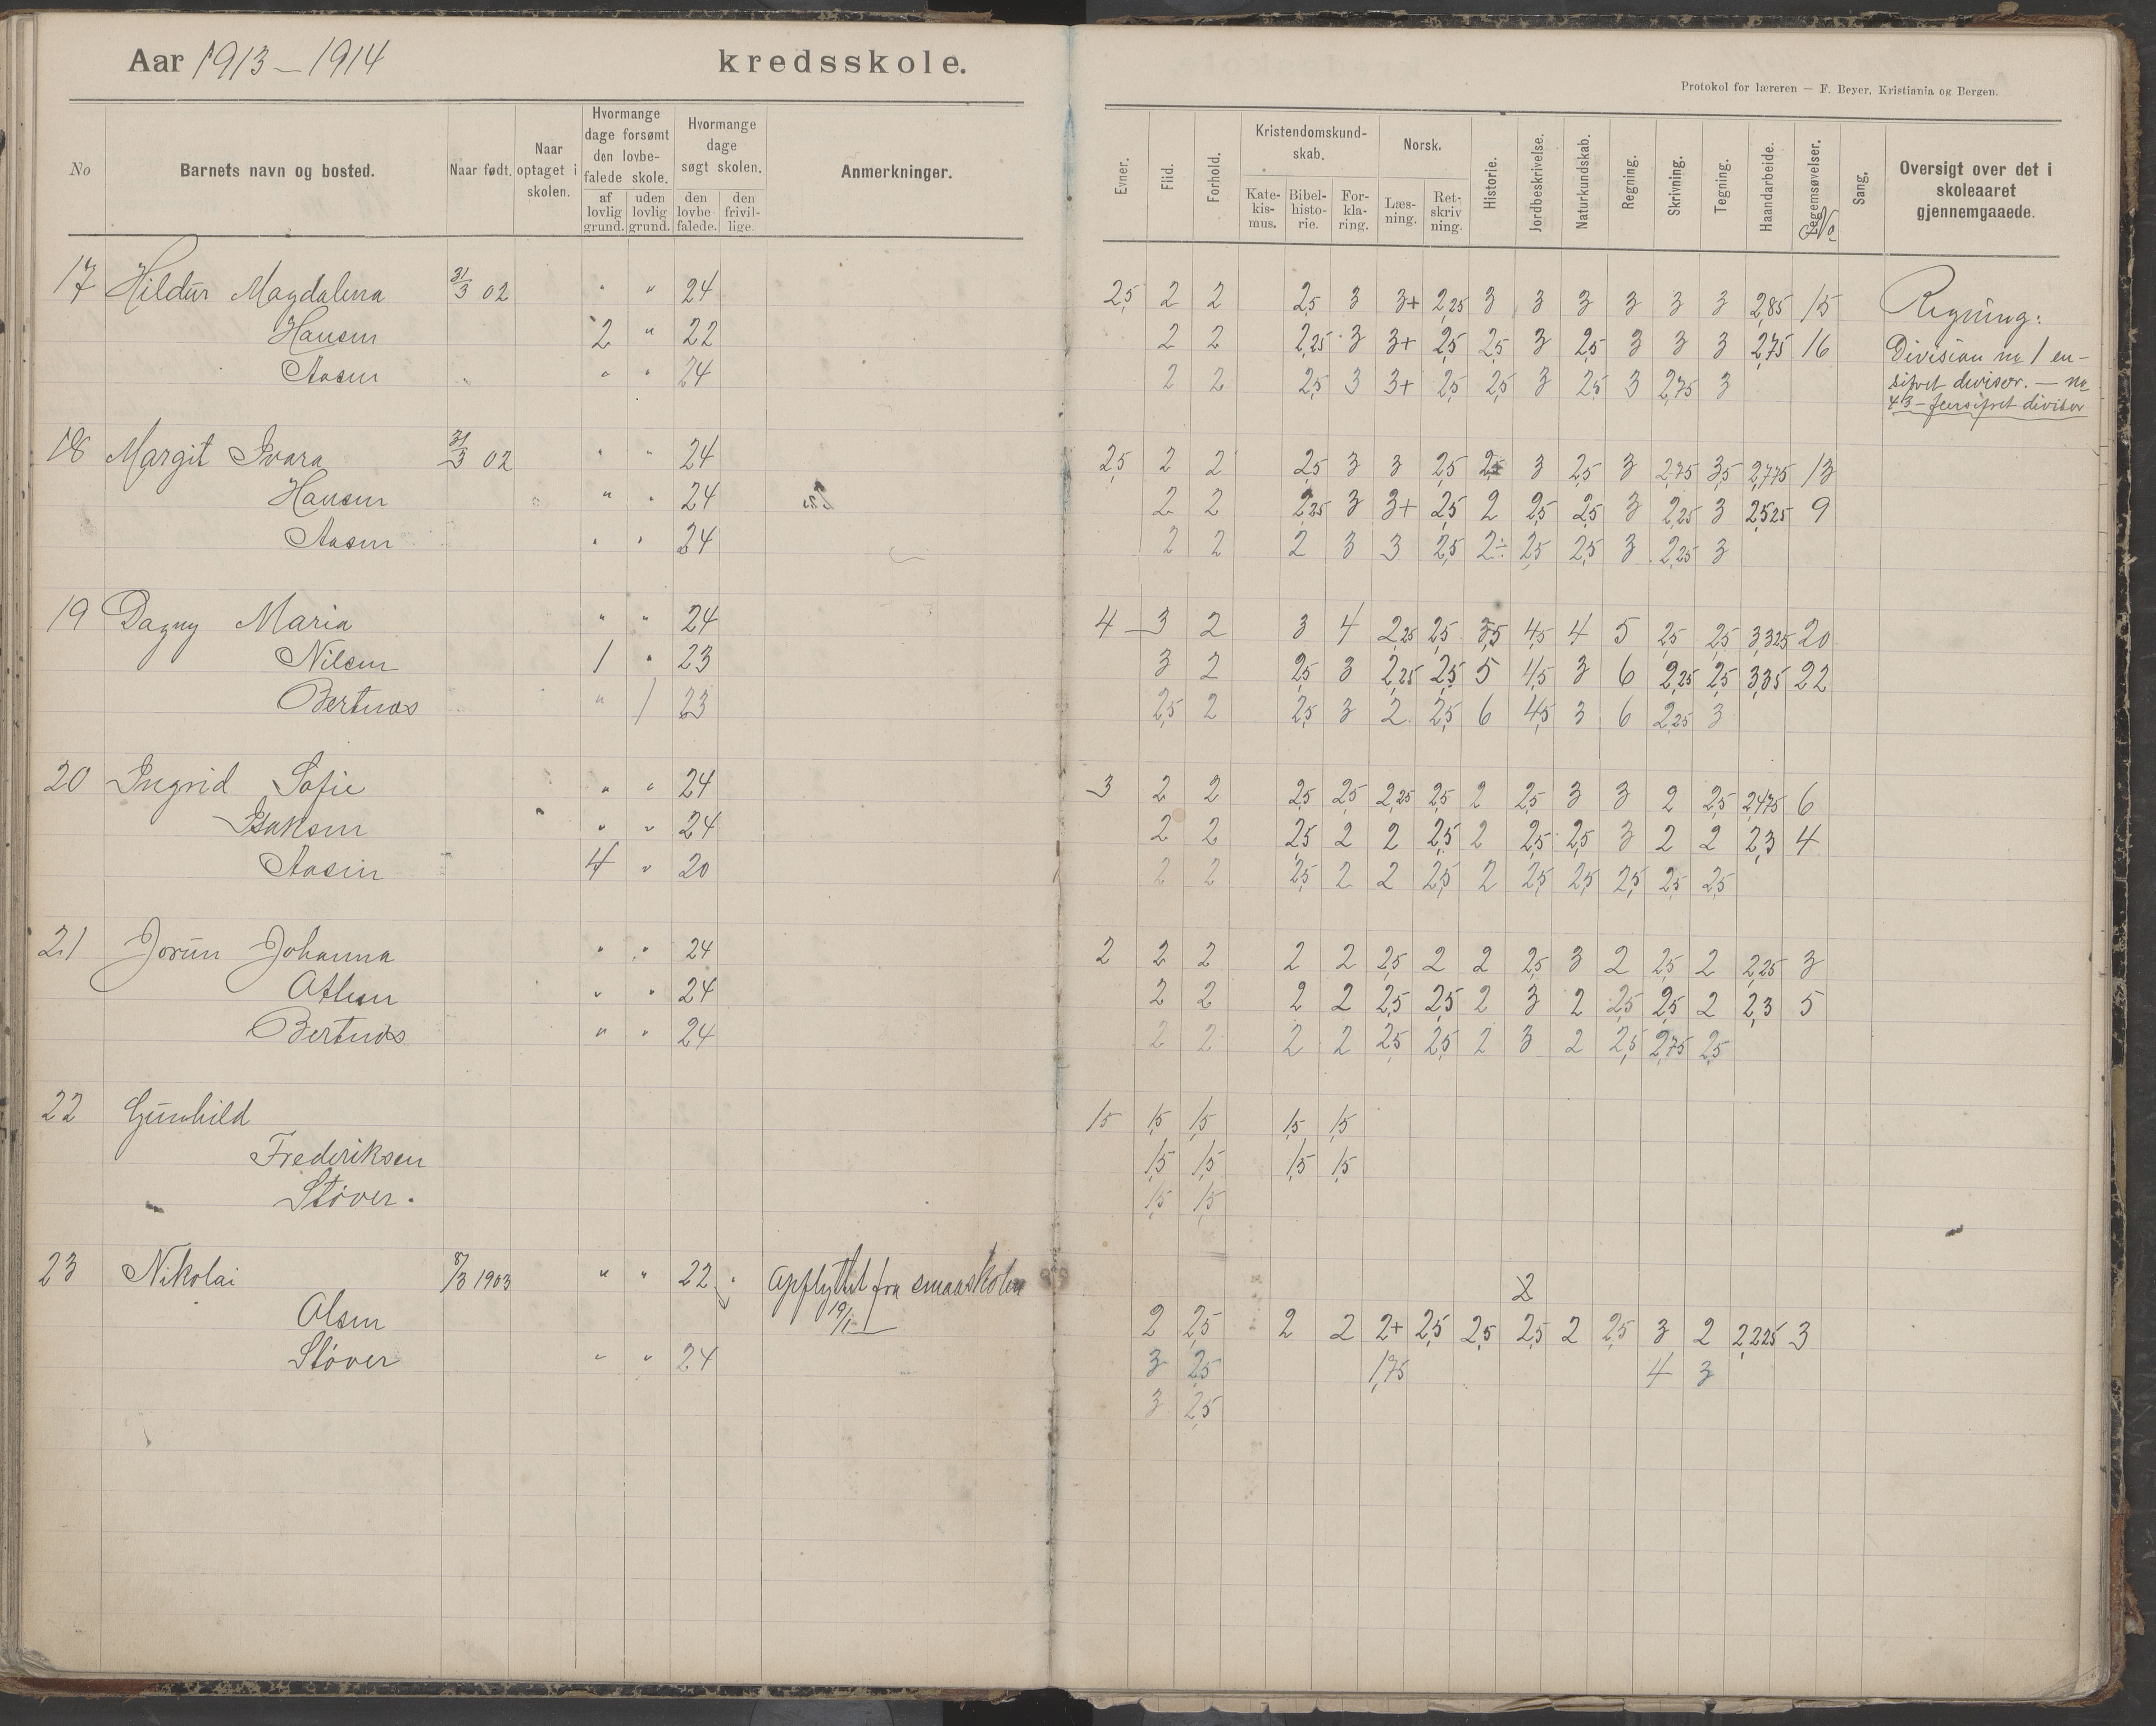 Aar 1913–1914 kredsskole.
Protokol for læreren — F. Beyer, Kristiania og Bergen.
No Barnets navn og bosted. Naar født. Naar optaget i skolen. Hvormange dage forsømt den lovbefalede skole. af lovlig grund. uden lovlig grund. Hvormange dage søgt skolen. den lovbefalede. den frivillige. Anmerkninger.
Evner. Flid. Forhold. Kristendomskundskab. Katekismus. Bibelhistorie. Forklaring. Norsk. Læsning. Retskrivning. Historie. Jordbeskrivelse. Naturkundskab. Regning. Skrivning. Tegning. Haandarbeide. Legemsøvelser. No Sang. Oversigt over det i skoleaaret gjennemgaaede.
17 Hildur Magdalena 31/3 02 " " 24 2,5 2 2 2,5 3 3+ 2,25 3 3 3 3 3 3 2,85 15 Regning:
Hansen 2 " 22 2 2 2,25 3 3+ 2,5 2,5 3 2,5 3 3 3 2,75 16 Division m 1 en-
Aasen " " 24 2 2 2,5 3 3+ 2,5 2,5 3 2,5 3 2,75 3 sifret divisor. — m
4/3 – flersifret divisor
18 Margit Ivara 31/3 02 " " 24 2,5 2 2 2,5 3 3 2,5 2,5 3 2,5 3 2,75 3,5 2,775 13
Hansen " " 24 2 2 2,25 3 3+ 2,5 2 2,5 2,5 3 2,25 3 2,525 9
Aasen " " 24 2 2 2 3 3 2,5 2÷ 2,5 2,5 3 2,25 3
19 Dagny Maria " " 24 4 3 2 3 4 2,25 2,5 3,5 4,5 4 5 2,5 2,5 3,325 20
Nilsen 1 " 23 3 2 2,5 3 2,25 2,5 5 4,5 3 6 2,25 2,5 3,35 22
Bertnæs " 1 23 2,5 2 2,5 3 2 2,5 6 4,5 3 6 2,25 3
20 Ingrid Sofie " " 24 3 2 2 2,5 2,5 2,25 2,5 2 2,5 3 3 2 2,5 2,475 6
Isaksen " " 24 2 2 2,5 2 2 2,5 2 2,5 2,5 3 2 2 2,3 4
Aasen 4 " 20 2 2 2,5 2 2 2,5 2 2,5 2,5 2,5 2,5 2,5
21 Jorun Johanna " " 24 2 2 2 2 2 2,5 2 2 2,5 3 2 2,5 2 2,25 3
Olsen " " 24 2 2 2 2 2,5 2,5 2 3 2 2,5 2,5 2 2,3 5
Bertnæs " " 24 2 2 2 2 2,5 2,5 2 3 2 2,5 2,75 2,5
22 Gunhild 1,5 1,5 1,5 1,5 1,5
Frederiksen 1,5 1,5 1,5 1,5
Støver. 1,5 1,5
23 Nikolai 8/3 1903 " " 22 " Opflyttet fra smaaskolen 2
Olsen 19/1 2 2,5 2 2 2+ 2,5 2,5 2,5 2 2,5 3 2 2,225 3
Støver " " 24 3 2,5 1,75 4 3
3 2,5